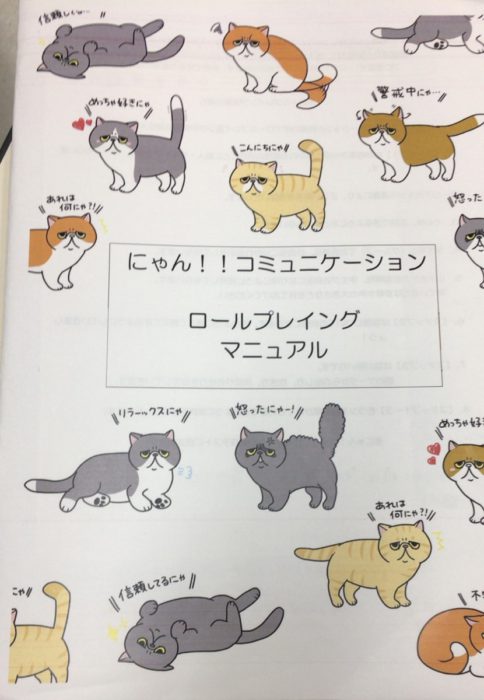 信頼してる…
めっちゃ好きにゃ
警戒中にゃ…
こんにちにゃ
あれは
何にゃ?!
怒った
にゃん！！コミュニケーション
ロールプレイング
マニュアル
リラ〜ックスにゃ
怒ったにゃー!
めっちゃ好き
あれは
何にゃ?!
信頼してるにゃ
にゃ
不